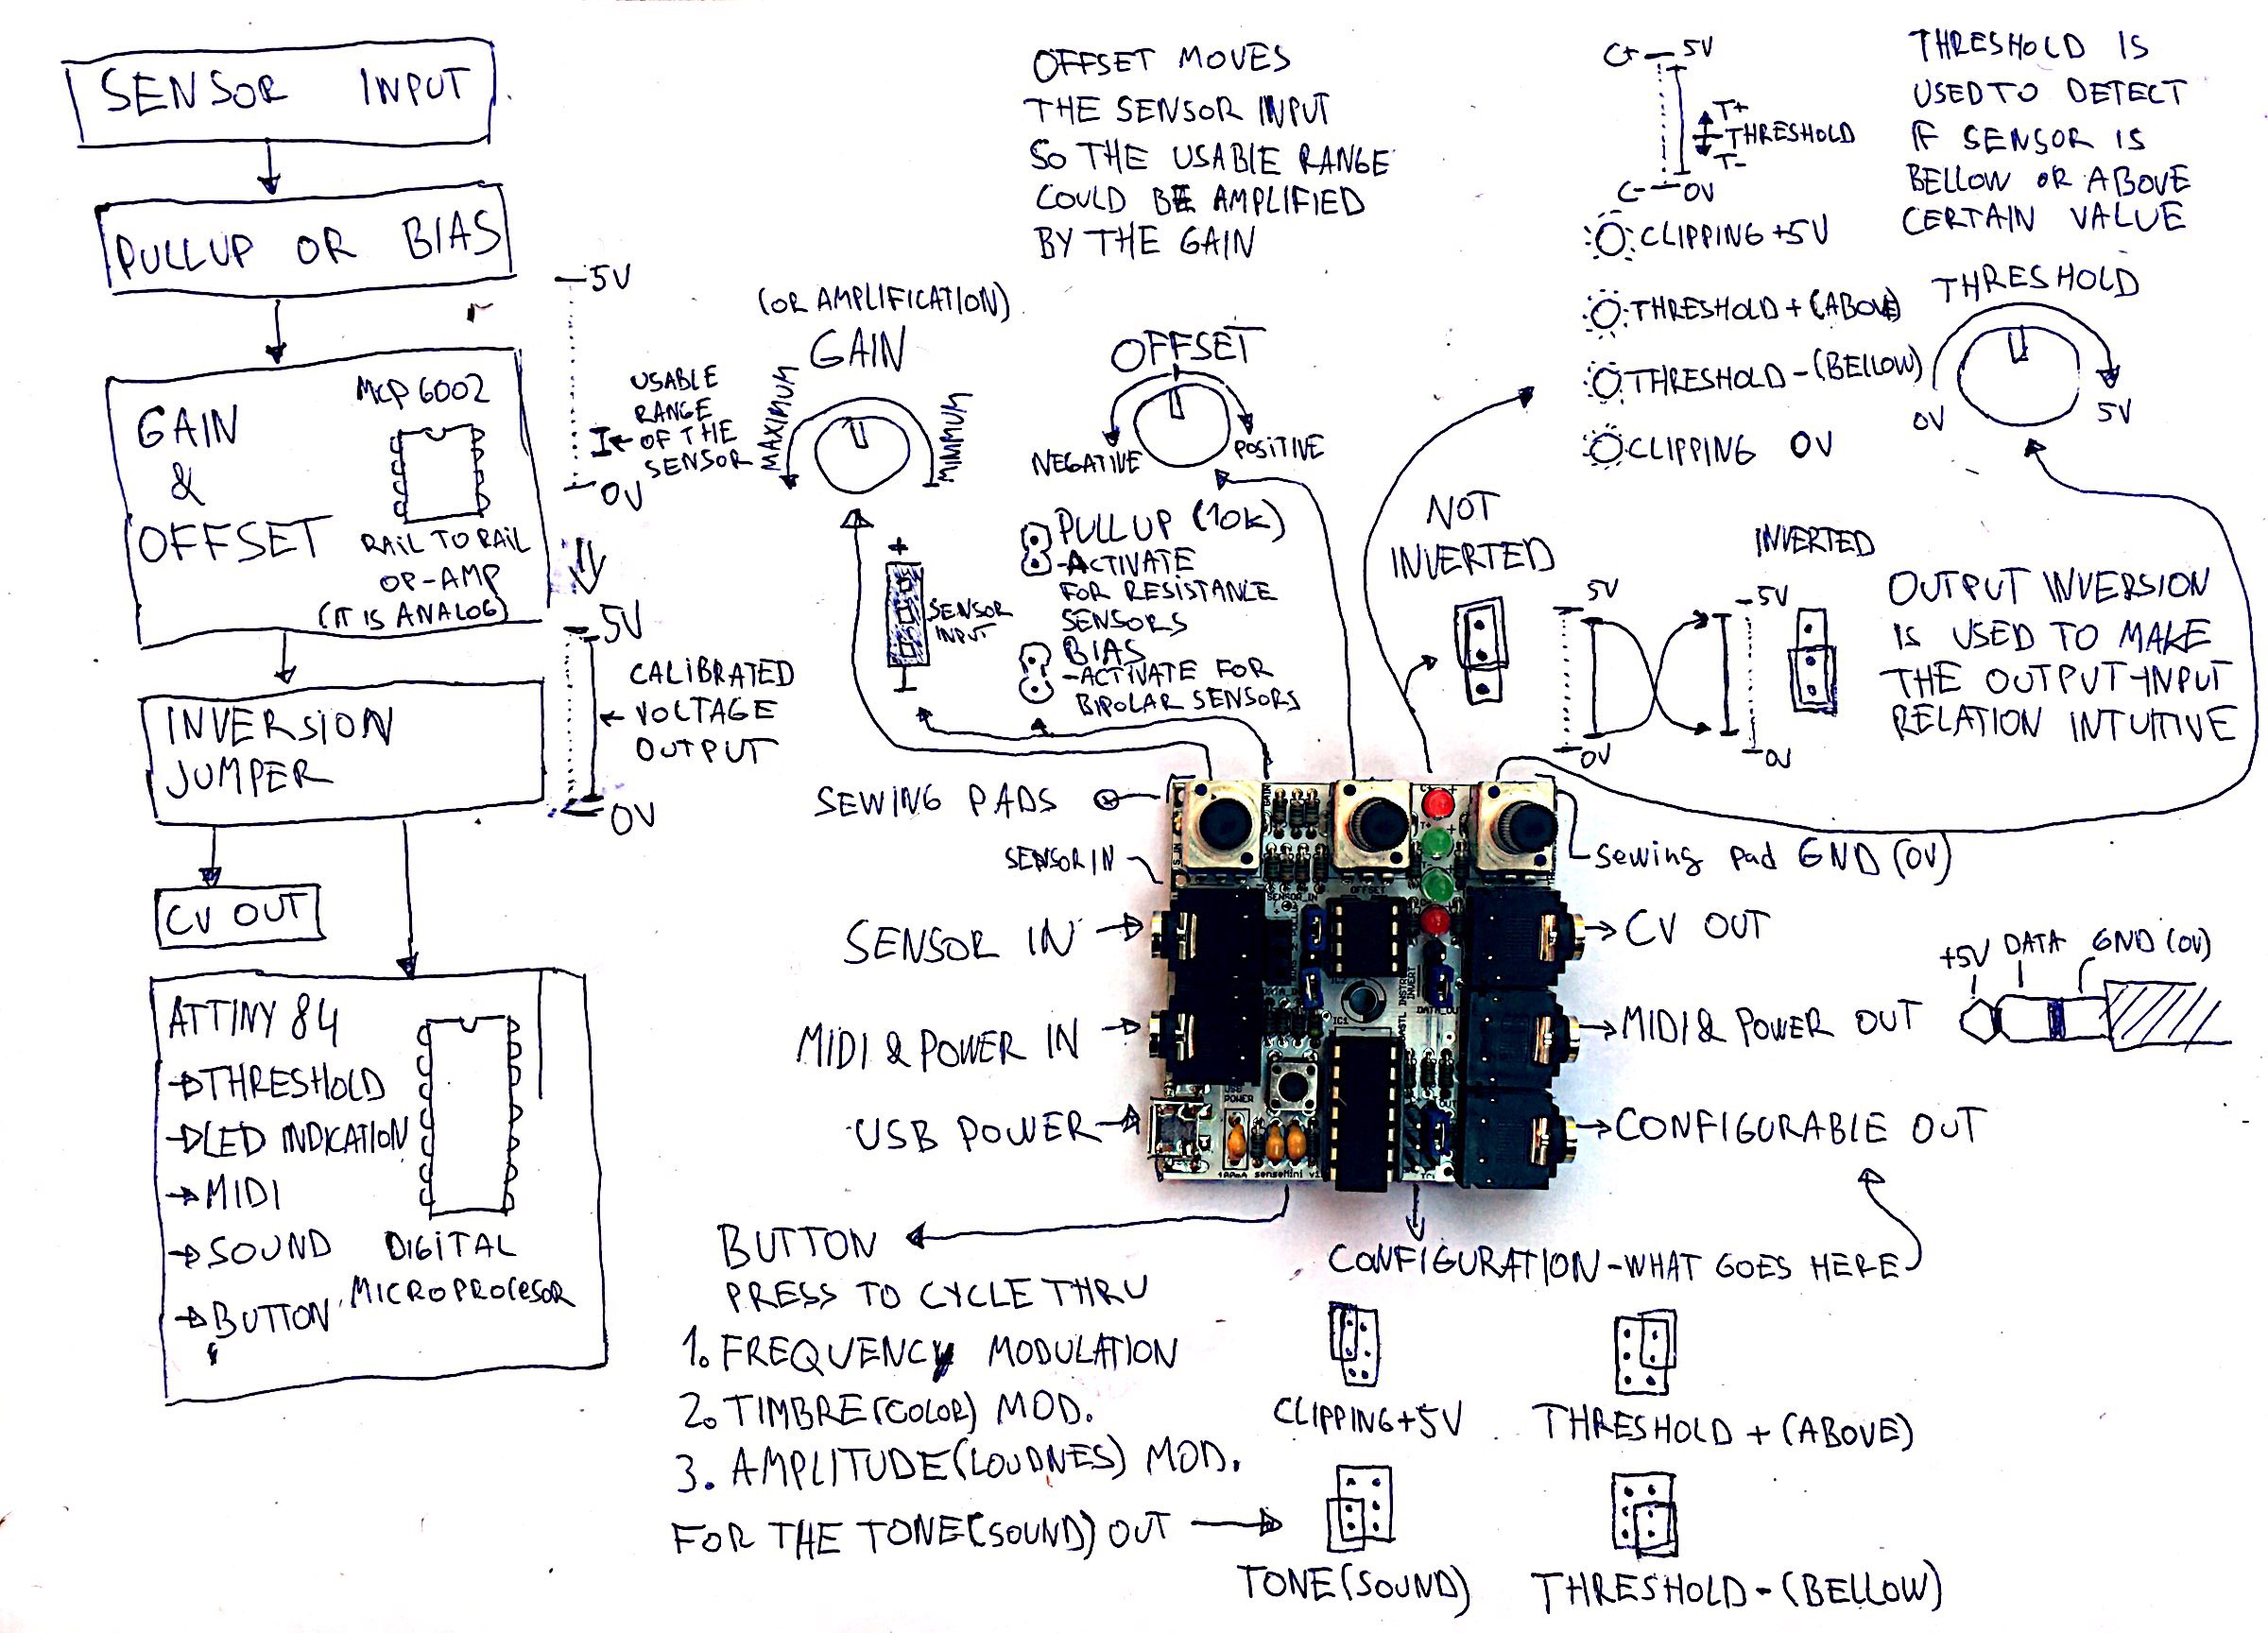 SENSOR INPUT
PULLUP OR BIAS
GAIN
&
OFFSET
MCP6002
RAIL TO RAIL
OP-AMP
(IT IS ANALOG)
INVERSION
JUMPER
CV OUT
ATTINY 84
THRESHOLD
LED INDICATION
MIDI
SOUND
BUTTON
DIGITAL
MICROPROCESOR
5V
USABLE
RANGE
OF THE
SENSOR
0V
5V
CALIBRATED
VOLTAGE
OUTPUT
0V
(OR AMPLIFICATION)
GAIN
MAXIMUM
MIMMUM
OFFSET MOVES
THE SENSOR INPUT
SO THE USABLE RANGE
COULD BE AMPLIFIED
BY THE GAIN
OFFSET
NEGATIVE
POSITIVE
+
SENSOR
INPUT
PULLUP (10K)
-ACTIVATE
FOR RESISTANCE
SENSORS
BIAS
-ACTIVATE FOR
BIPOLAR SENSORS
C+ 5V
T+
THRESHOLD
T-
C- 0V
CLIPPING +5V
THRESHOLD + (ABOVE)
THRESHOLD - (BELLOW)
CLIPPING 0V
THRESHOLD IS
USED TO DETECT
IF SENSOR IS
BELLOW OR ABOVE
CERTAIN VALUE
THRESHOLD
0V
5V
NOT
INVERTED
5V
0V
INVERTED
5V
0V
OUTPUT INVERSION
IS USED TO MAKE
THE OUTPUT-INPUT
RELATION INTUITIVE
SEWING PADS
SENSOR IN
SENSOR IN
MIDI & POWER IN
USB POWER
Sewing Pad GND (0V)
CV OUT
MIDI & POWER OUT
CONFIGURABLE OUT
+5V DATA GND (0V)
GAIN
C+
T+
T-
S_IN
OFFSET
SENSOR_IN
INVERT
DATA_OUT
IC1
POWER
OUT
100mA senseMini v1
BUTTON
PRESS TO CYCLE THRU
1. FREQUENCY MODULATION
2. TIMBRE (COLOR) MOD.
3. AMPLITUDE (LOUDNES) MOD.
FOR THE TONE (SOUND) OUT
CONFIGURATION - WHAT GOES HERE
CLIPPING +5V
THRESHOLD + (ABOVE)
TONE (SOUND)
THRESHOLD - (BELLOW)